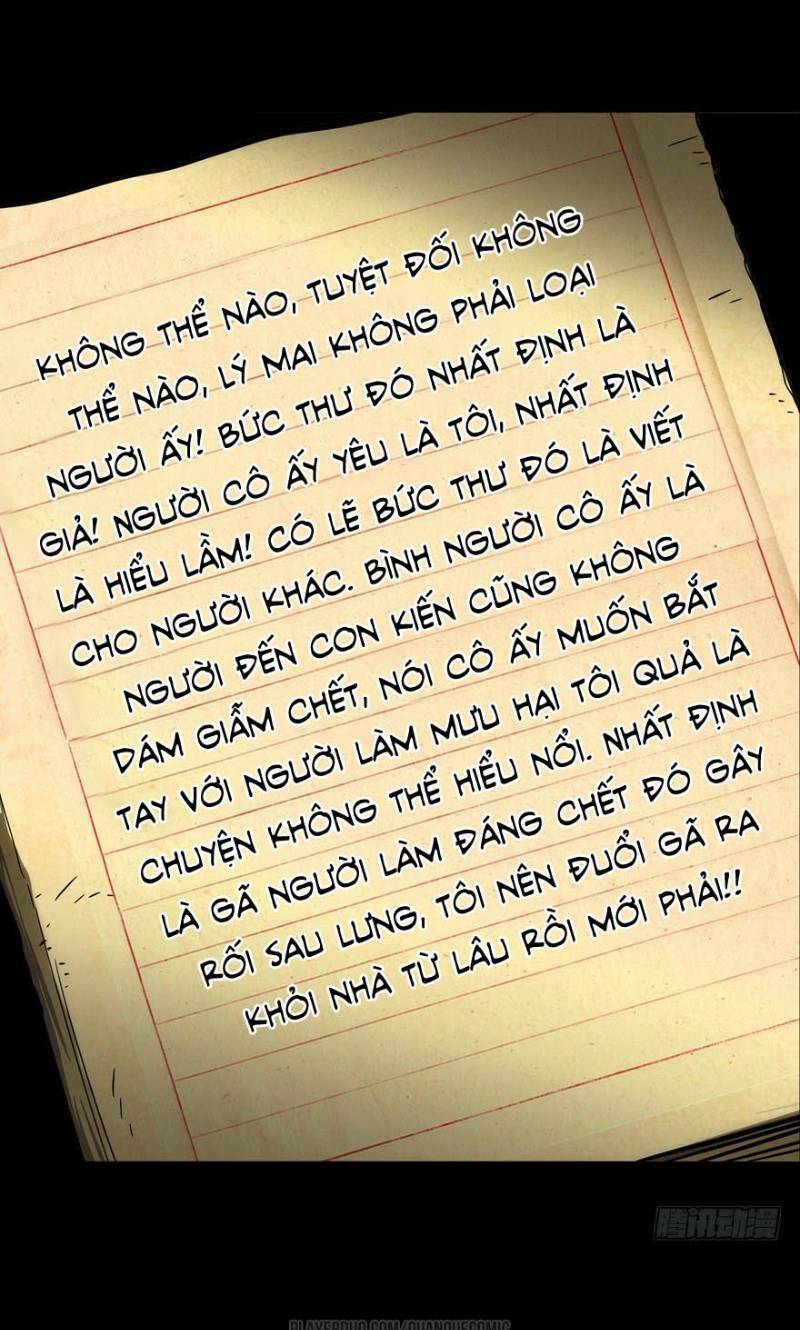 KHÔNG THỂ NÀO, TUYỆT ĐỐI KHÔNG
THỂ NÀO, LÝ MAI KHÔNG PHẢI LOẠI
NGƯỜI ẤY! BỨC THƯ ĐÓ NHẤT ĐỊNH LÀ
GIẢ! NGƯỜI CÔ ẤY YÊU LÀ TÔI, NHẤT ĐỊNH
LÀ HIỂU LẦM! CÓ LẼ BỨC THƯ ĐÓ LÀ VIẾT
CHO NGƯỜI KHÁC. BÌNH NGƯỜI CÔ ẤY LÀ
NGƯỜI ĐẾN CON KIẾN CŨNG KHÔNG
DÁM GIẪM CHẾT, NÓI CÔ ẤY MUỐN BẮT
TAY VỚI NGƯỜI LÀM MƯU HẠI TÔI QUẢ LÀ
CHUYỆN KHÔNG THỂ HIỂU NỔI. NHẤT ĐỊNH
LÀ GÃ NGƯỜI LÀM ĐÁNG CHẾT ĐÓ GÂY
RỐI SAU LƯNG, TÔI NÊN ĐUỔI GÃ RA
KHỎI NHÀ TỪ LÂU RỒI MỚI PHẢI!!
腾讯动漫
PLAYERDUO.COM/QUANQUECOMIC